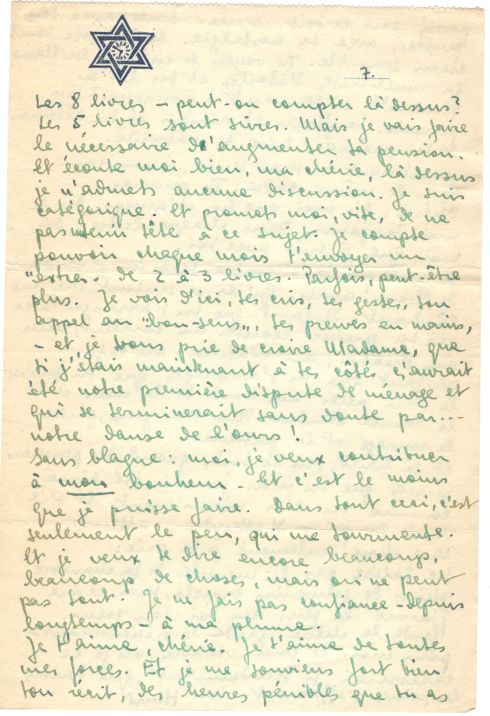 7.
Les 8 livres – peut-on compter là dessus?
Les 5 livres sont sûres. Mais je vais faire
le nécessaire d'augmenter ta pension.
Et écoute moi bien, ma chérie, là dessus
je n'admets aucune discussion. Je suis
catégorique. Et promets moi, vite, de ne
pas tenir tête à ce sujet. Je compte
pouvoir chaque mois t'envoyer un
"extra" de 2 à 3 livres. Parfois, peut-être
plus. Je vois d'ici, tes cris, tes gestes, ton
appel au "bon-sens", tes preuves en mains,
– et je vous prie de croire Madame, que
si j'étais maintenant à tes côtés ç'aurait
été notre première dispute de ménage et
qui se terminerait sans doute par...
notre danse de l'ours!
Sans blague: moi, je veux contribuer
à mon bonheur. Et c'est le moins
que je puisse faire. Dans tout ceci, c'est
seulement le peu, qui me tourmente.
Et je veux te dire encore beaucoup,
beaucoup de choses, mais on ne peut
pas tout. Je ne fais pas confiance – depuis
longtemps – à ma plume.
Je t'aime, chérie. Je t'aime de toutes
mes forces. Et je me souviens fort bien
ton récit, des heures pénibles que tu as